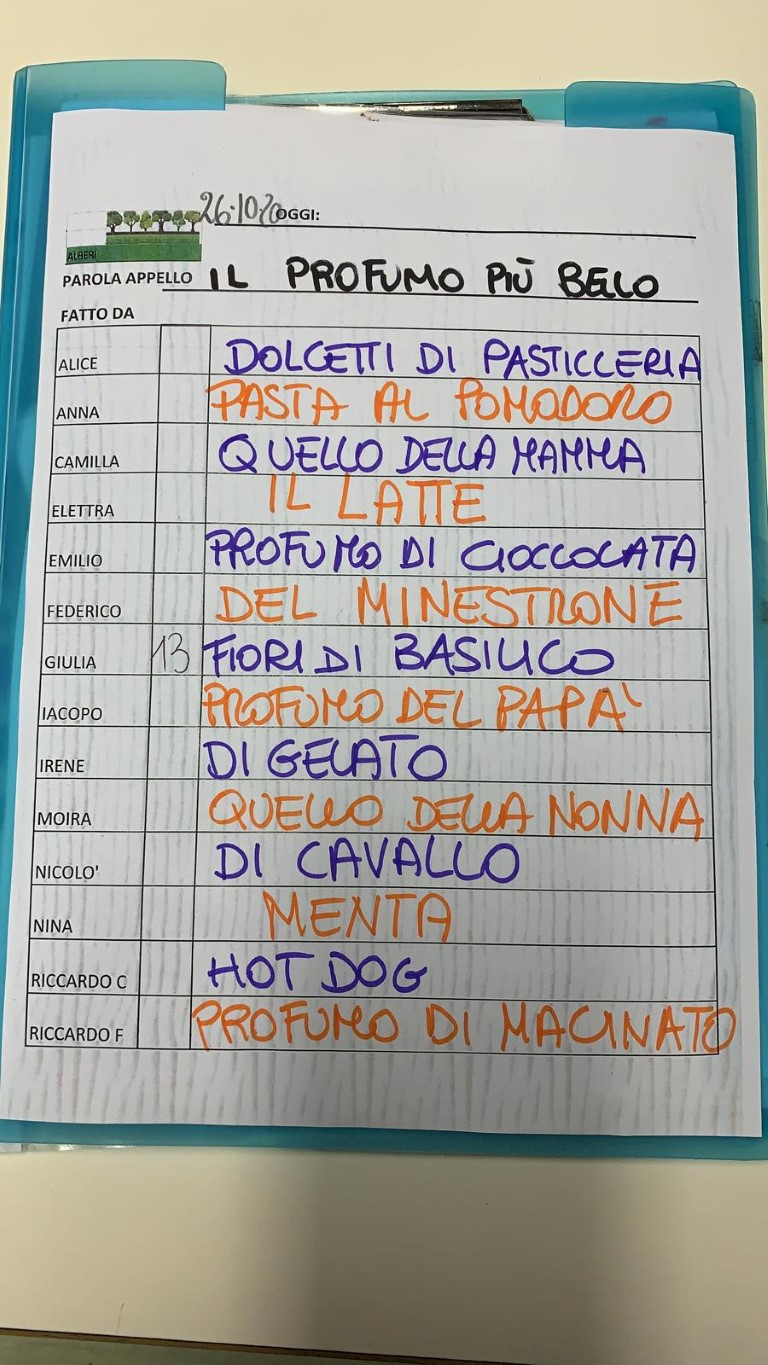 26.10.20 OGGI:
ALBERI
PAROLA APPELLO IL PROFUMO PIÙ BELLO
FATTO DA
ALICE DOLCETTI DI PASTICCERIA
ANNA PASTA AL POMODORO
CAMILLA QUELLO DELLA MAMMA
ELETTRA IL LATTE
EMILIO PROFUMO DI CIOCCOLATA
FEDERICO DEL MINESTRONE
GIULIA 13 FIORI DI BASILICO
IACOPO PROFUMO DEL PAPA'
IRENE DI GELATO
MOIRA QUELLO DELLA NONNA
NICOLO' DI CAVALLO
NINA MENTA
RICCARDO C HOT DOG
RICCARDO F PROFUMO DI MACINATO